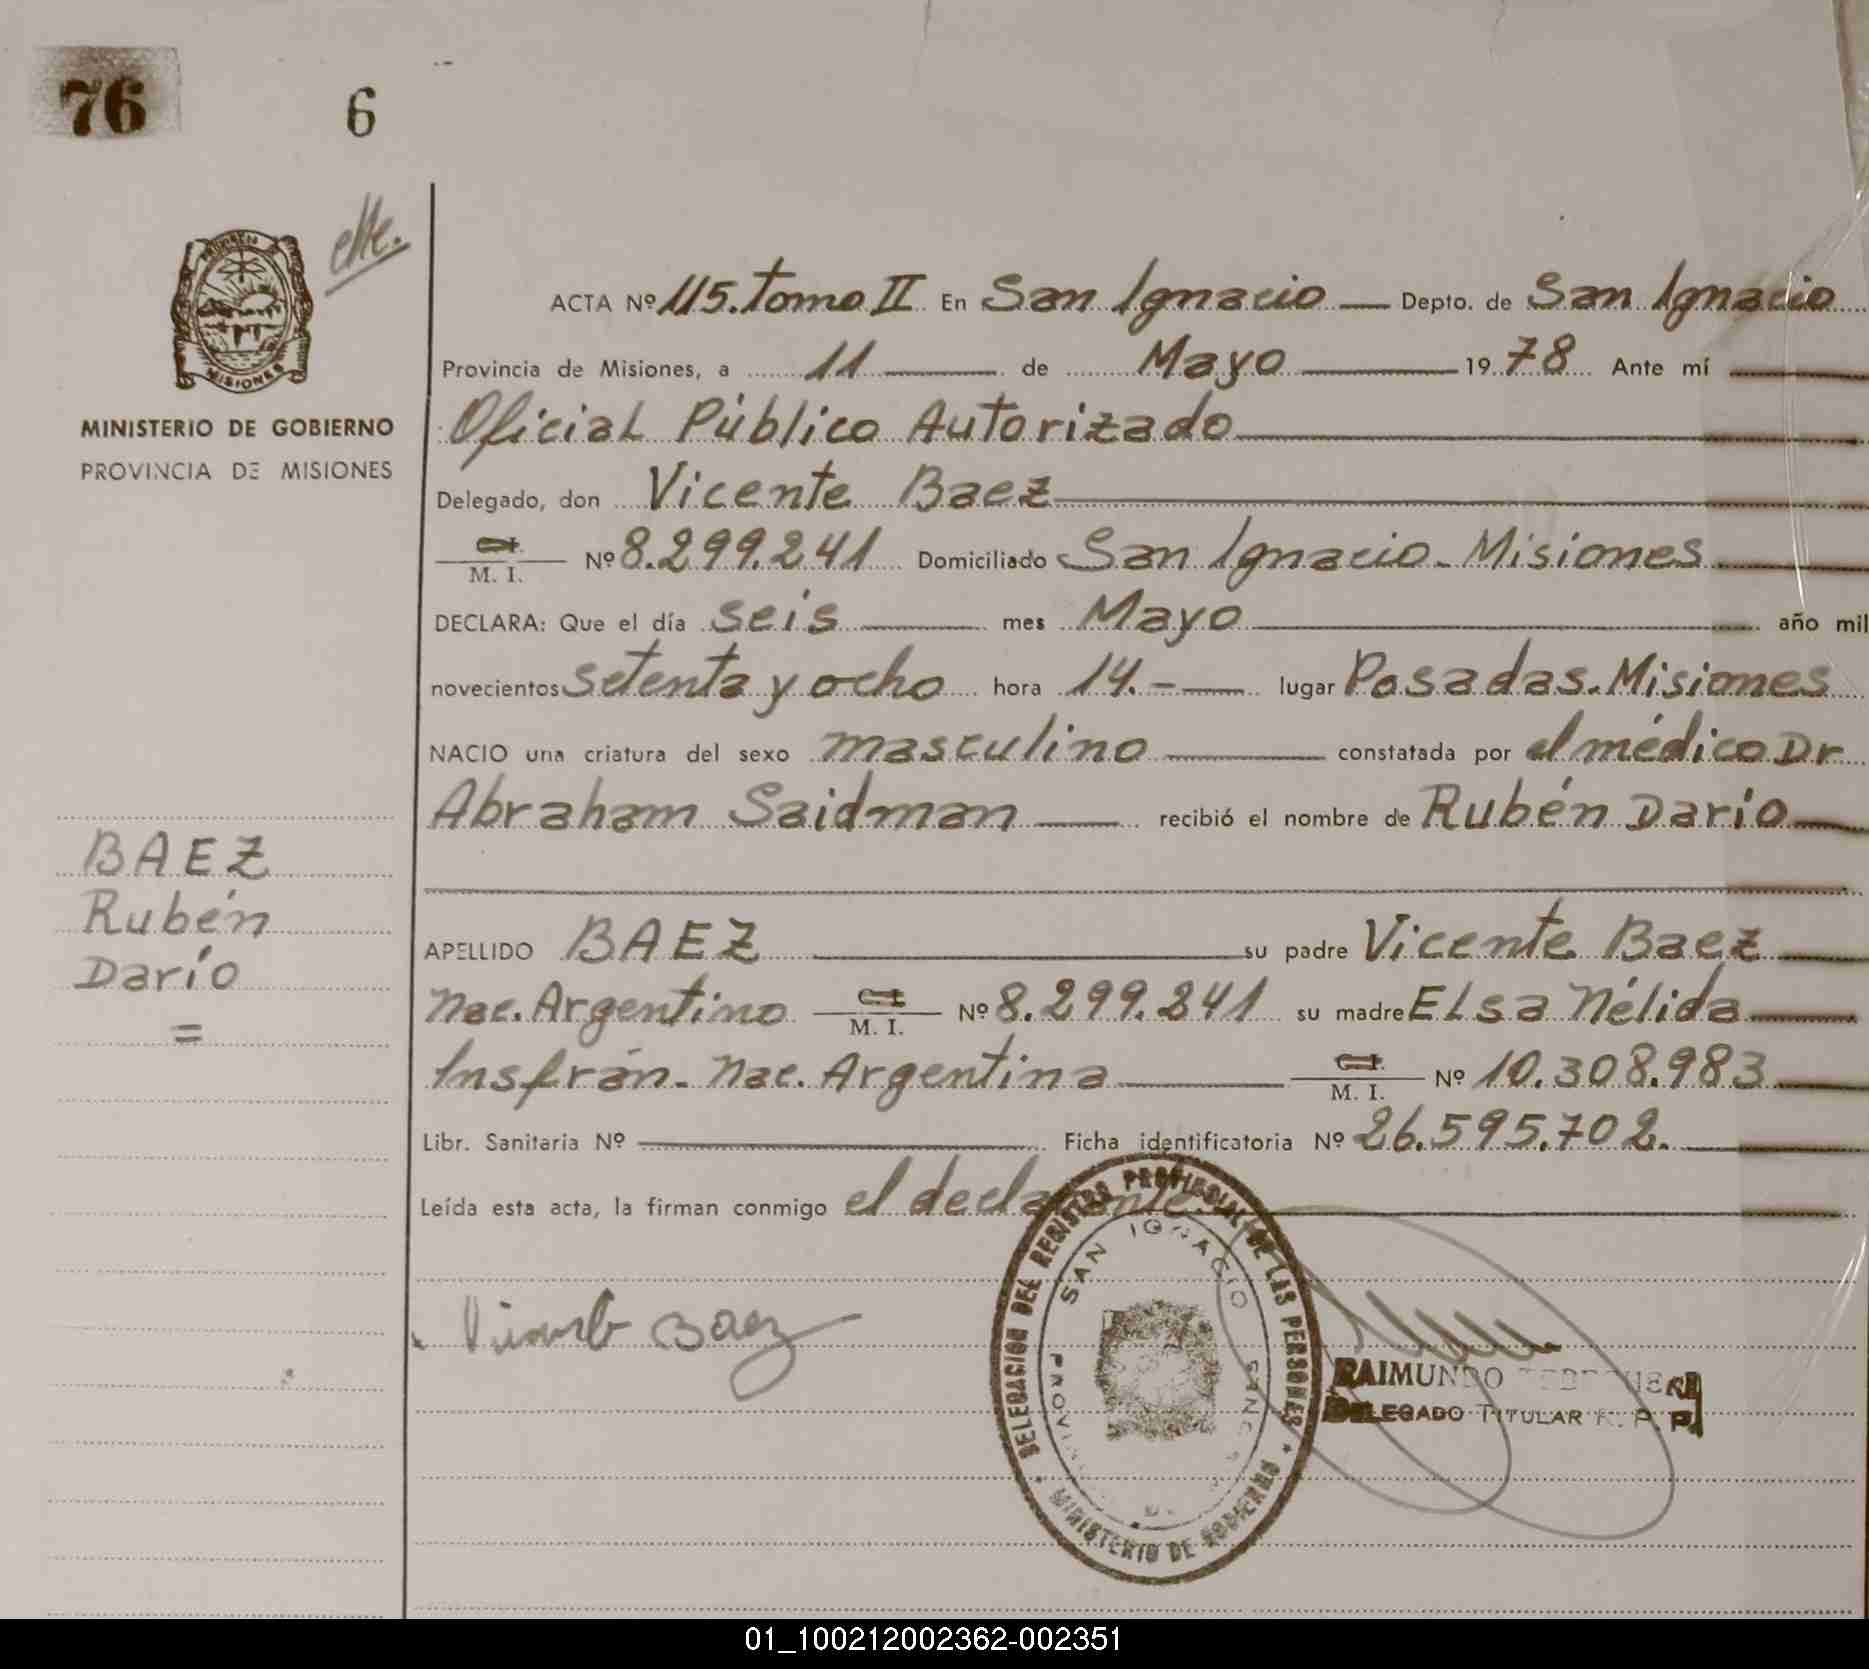 76 6
cte.
PROGRESO
MISIONES
MINISTERIO DE GOBIERNO
PROVINCIA DE MISIONES
BAEZ
Rubén
Darío
=
ACTA Nº 115. tomo II En San Ignacio Depto. de San Ignacio
Provincia de Misiones, a 11 de Mayo 1978 Ante mí
Oficial Público Autorizado
Delegado, don Vicente Baez
C.I. M. I. Nº 8.299.241 Domiciliado San Ignacio. Misiones
DECLARA: Que el día seis mes Mayo año mil
novecientos setenta y ocho hora 14.- lugar Posadas. Misiones
NACIO una criatura del sexo masculino constatada por el médico Dr
Abraham Saidman recibió el nombre de Rubén Darío
APELLIDO BAEZ su padre Vicente Baez
Nac. Argentino C.I. M. I. Nº 8.299.241 su madre Elsa Nélida
Insfrán. Nac. Argentina C.I. M. I. Nº 10.308.983
Libr. Sanitaria Nº Ficha identificatoria Nº 26.595.702.
Leída esta acta, la firman conmigo el declarante.
Vicente Baez
DELEGACION DEL REGISTRO PROVINCIAL DE LAS PERSONAS
SAN IGNACIO
MINISTERIO DE GOBIERNO
RAIMUNDO
DELEGADO TITULAR R. P. P.
01_100212002362-002351